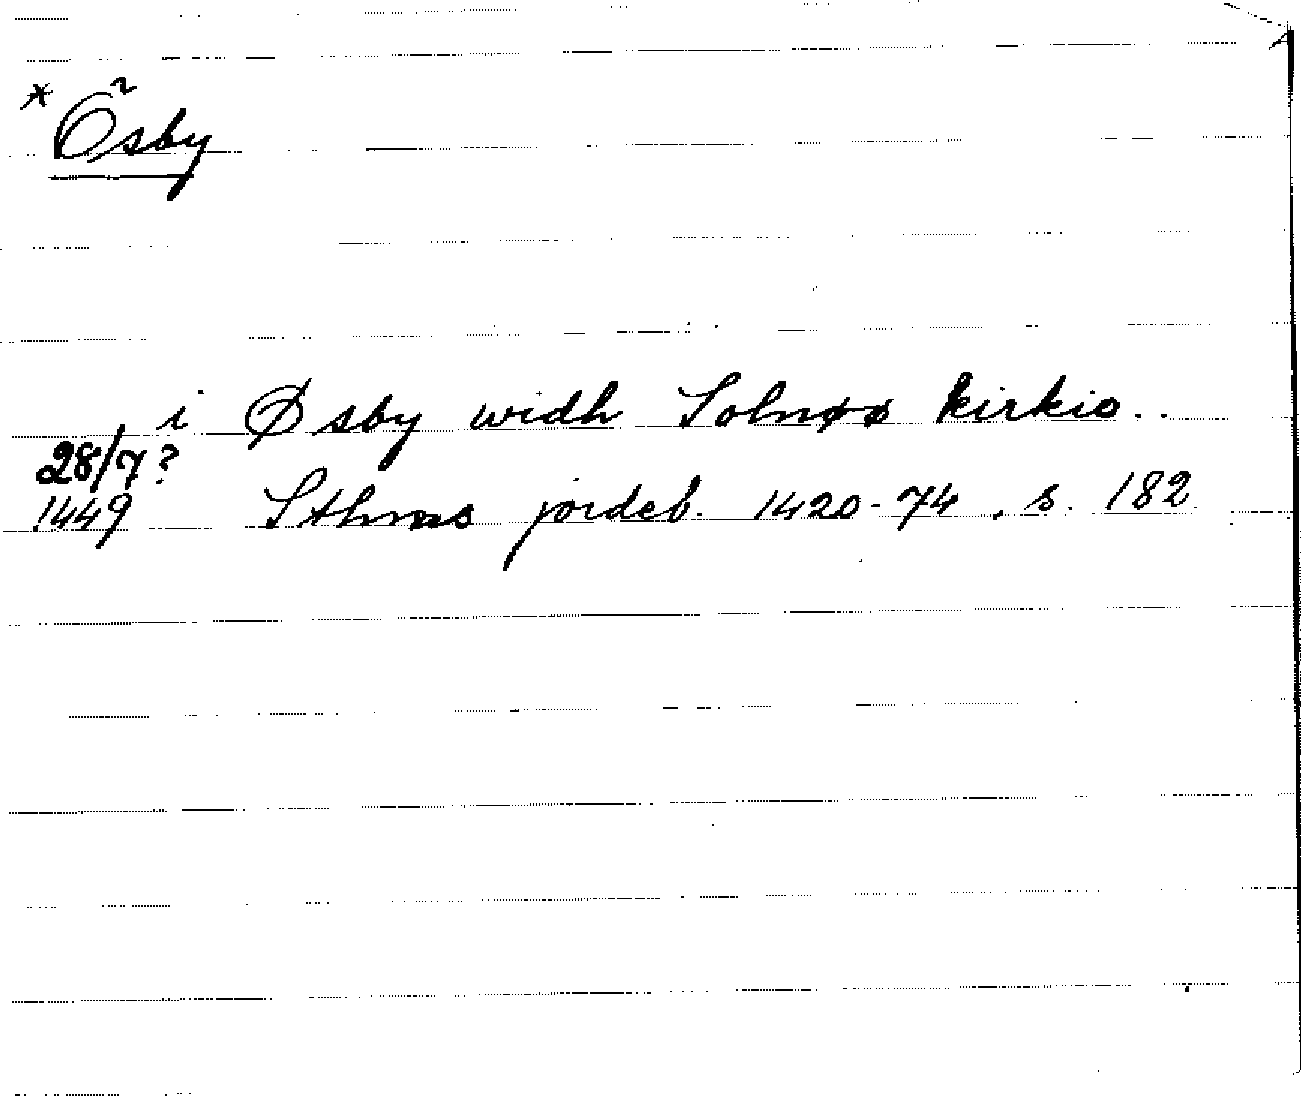 * Ösby
i Øsby widh Solnøø kirkio..
28/7?
1449 Sthms jordeb. 1420-74, s. 182